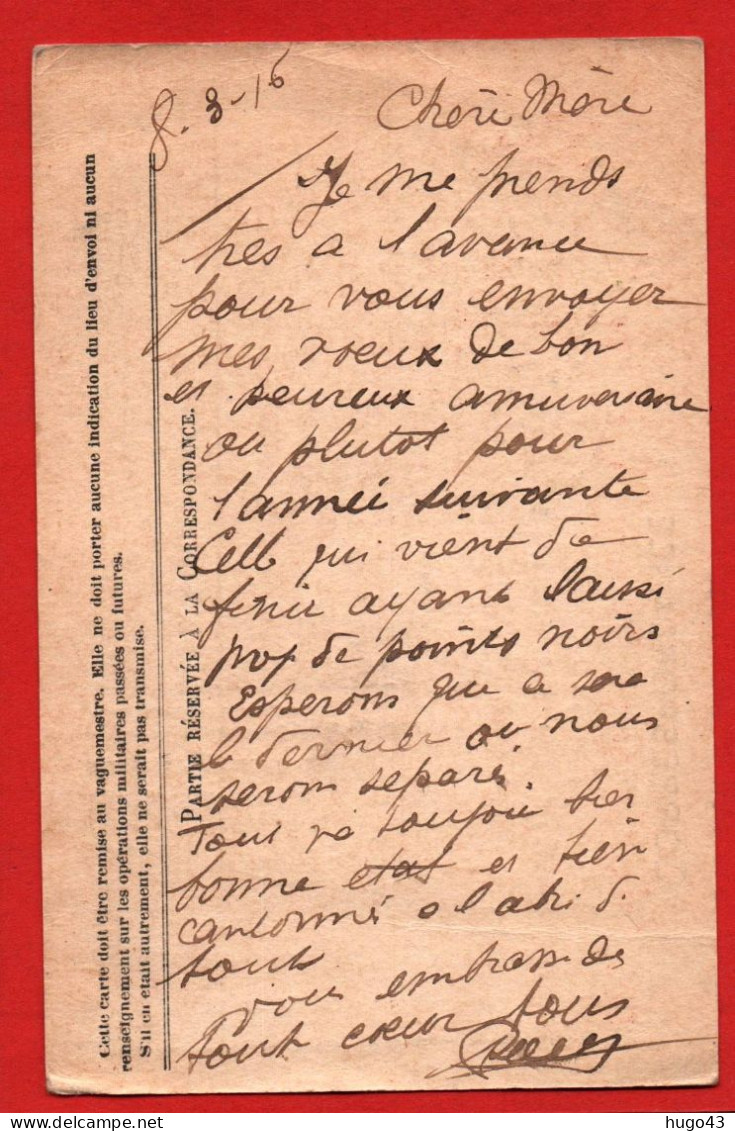 8-3-16
Chère Mère
Je me prends
tres a l'avance
pour vous envoyer
mes voeux de bon
et heureux anniversaire
ou plutot pour
l'année suivante
Celle qui vient de
finir ayant laissé
trop de points noirs
Esperons que ce sera
le dernier ou nous
serons separé.
Tout va toujour bien
bonne etat et bien
cantonné a l'abri de
tout
vous embrasse de
tout cœur tous
PARTIE RÉSERVÉE À LA CORRESPONDANCE.
Cette carte doit être remise au vaguemestre. Elle ne doit porter aucune indication du lieu d'envoi ni aucun
renseignement sur les opérations militaires passées ou futures.
S'il en était autrement, elle ne serait pas transmise.
hugo43